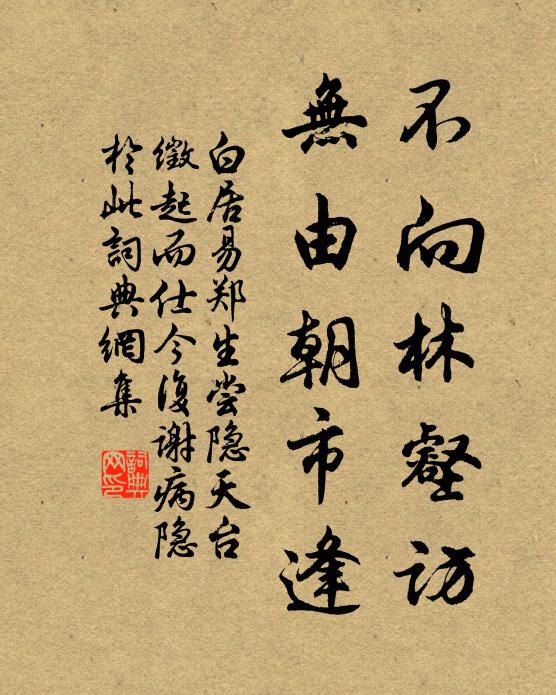 不向林壑访
無由朝市逢
白居易郑生尝隐天台
徵起而仕今復谢病隐
於此詞典網集
詞典网印